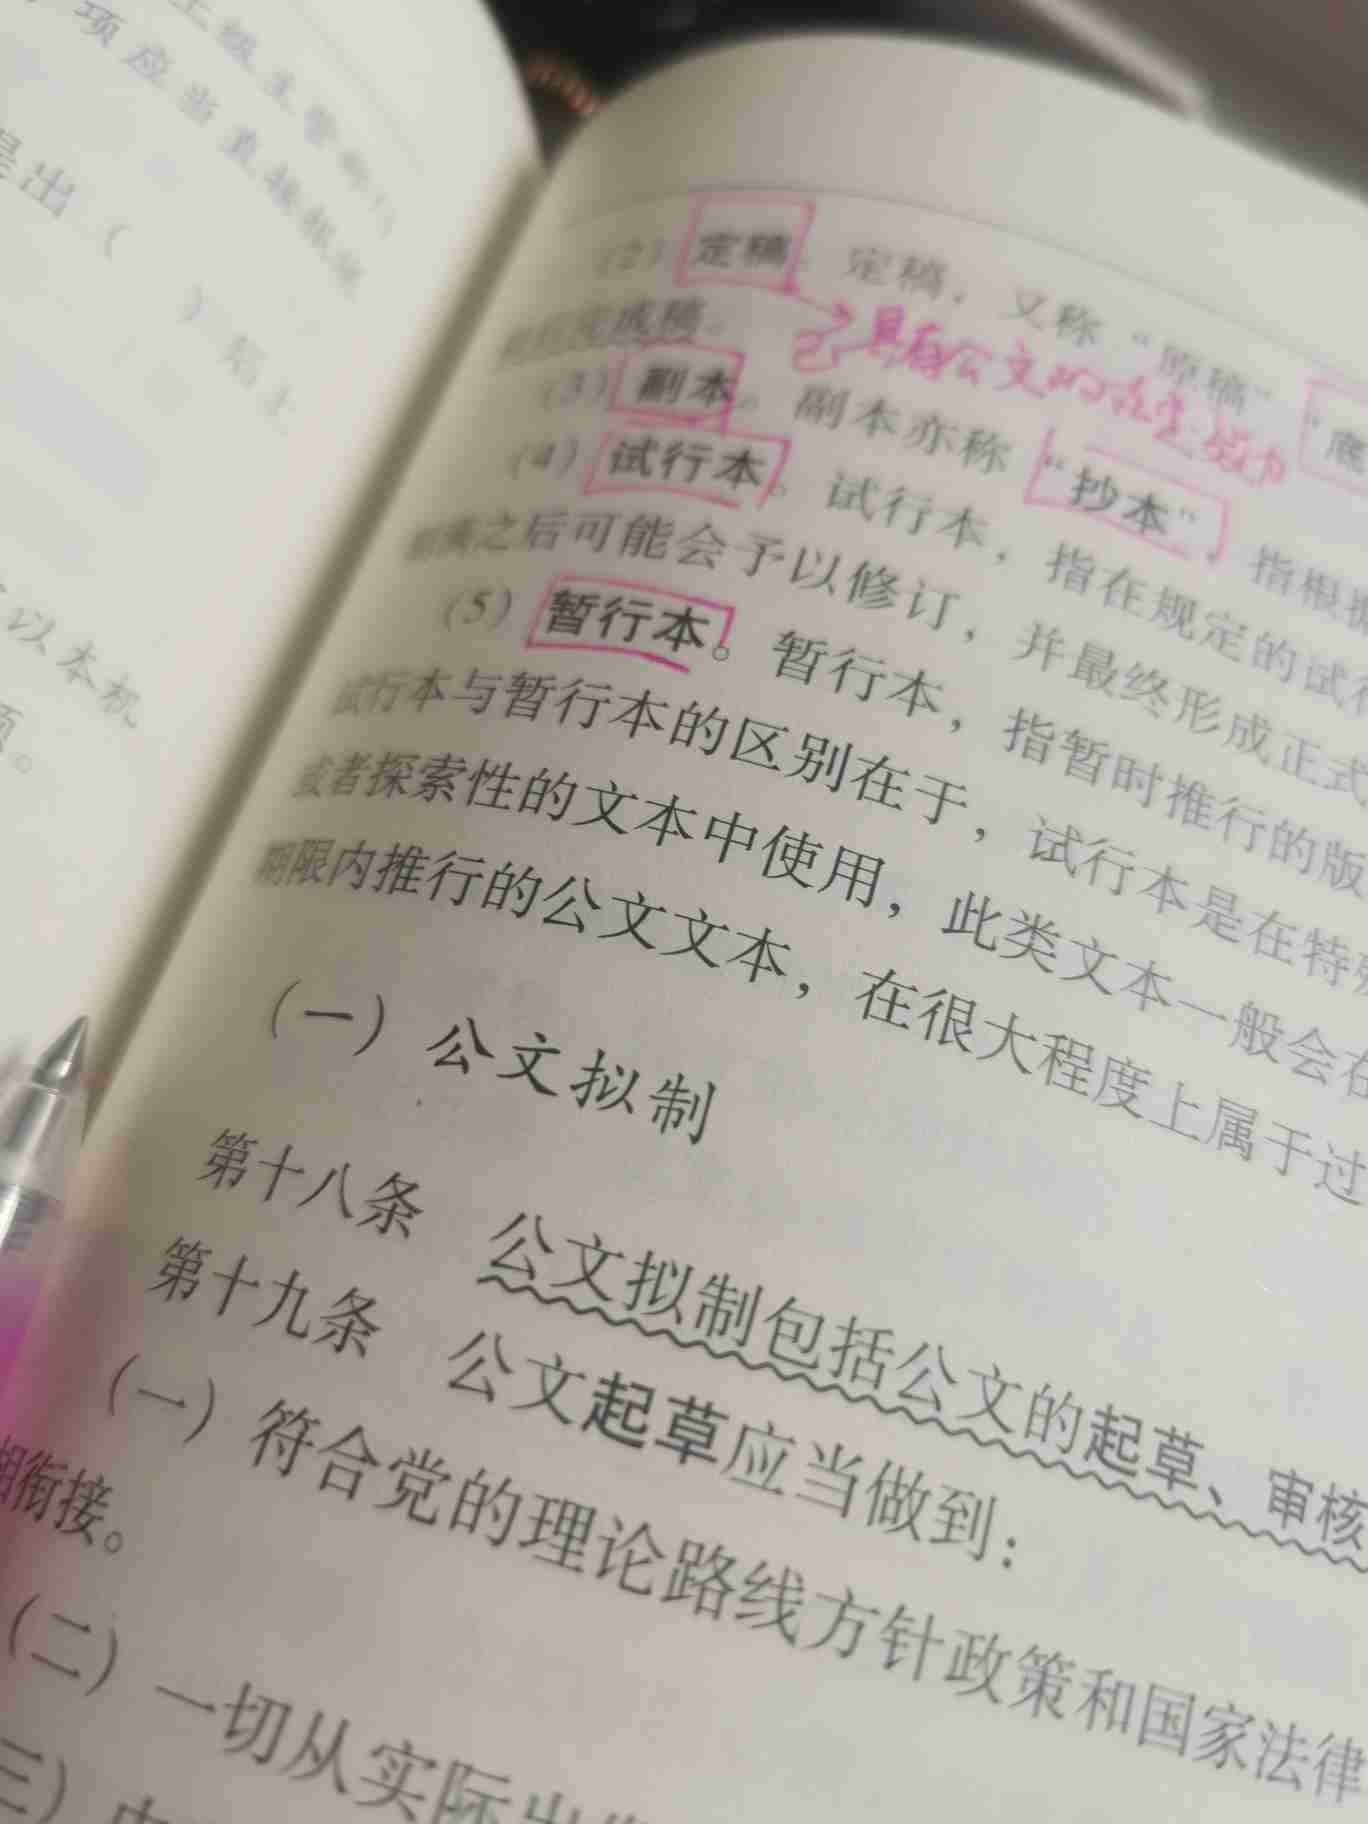 上级主管部门
项应当直接报送
是出（
）后上
以本机
项。
（2）定稿。定稿，又称“原稿”“底
已具有公文的法定效力
（3）副本。副本亦称“抄本”，指根据
（4）试行本。试行本，指在规定的试行
之后可能会予以修订，并最终形成正式
（5）暂行本。暂行本，指暂时推行的版
试行本与暂行本的区别在于，试行本是在特殊
或者探索性的文本中使用，此类文本一般会在
期限内推行的公文文本，在很大程度上属于过
（一）公文拟制
第十八条 公文拟制包括公文的起草、审核
第十九条 公文起草应当做到：
（一）符合党的理论路线方针政策和国家法律
相衔接。
（二）一切从实际出发
三）内